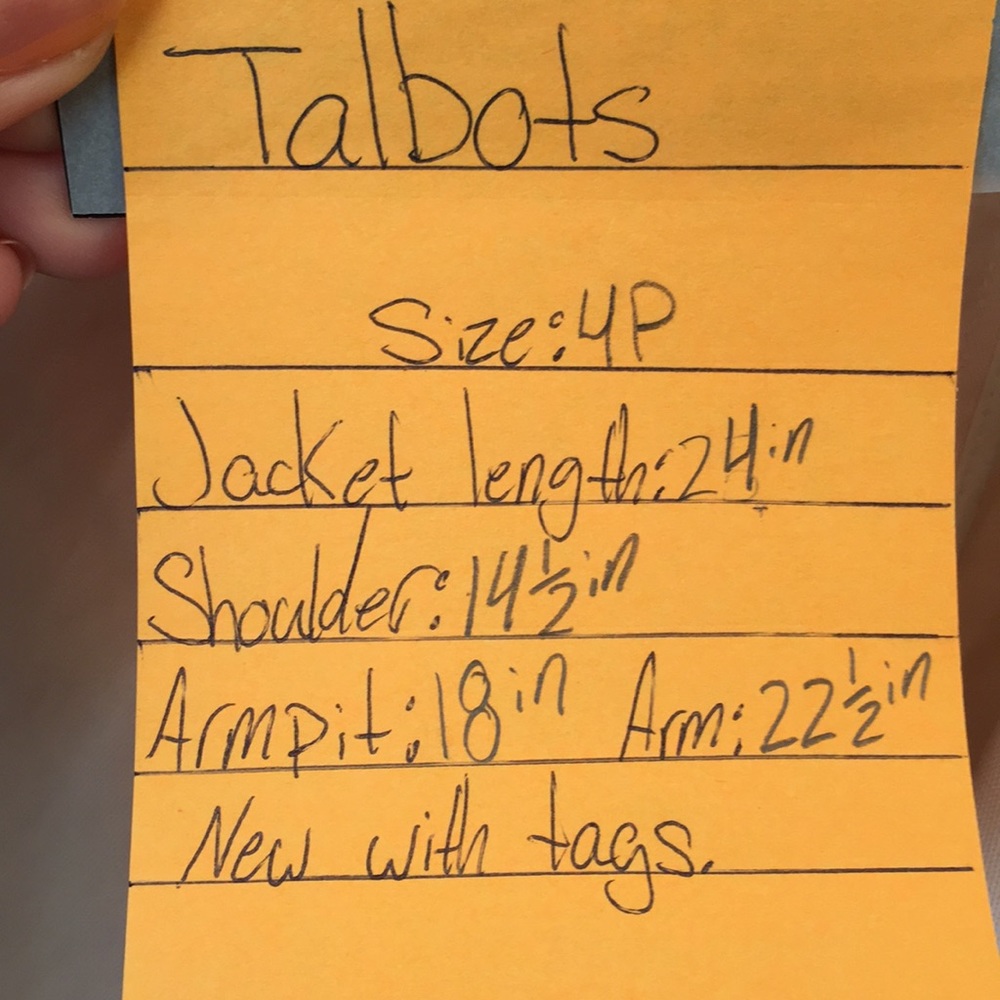 Talbots
Size: 4P
Jacket length: 24 in
Shoulder: 14 1/2 in
Armpit: 18 in Arm: 22 1/2 in
New with tags.